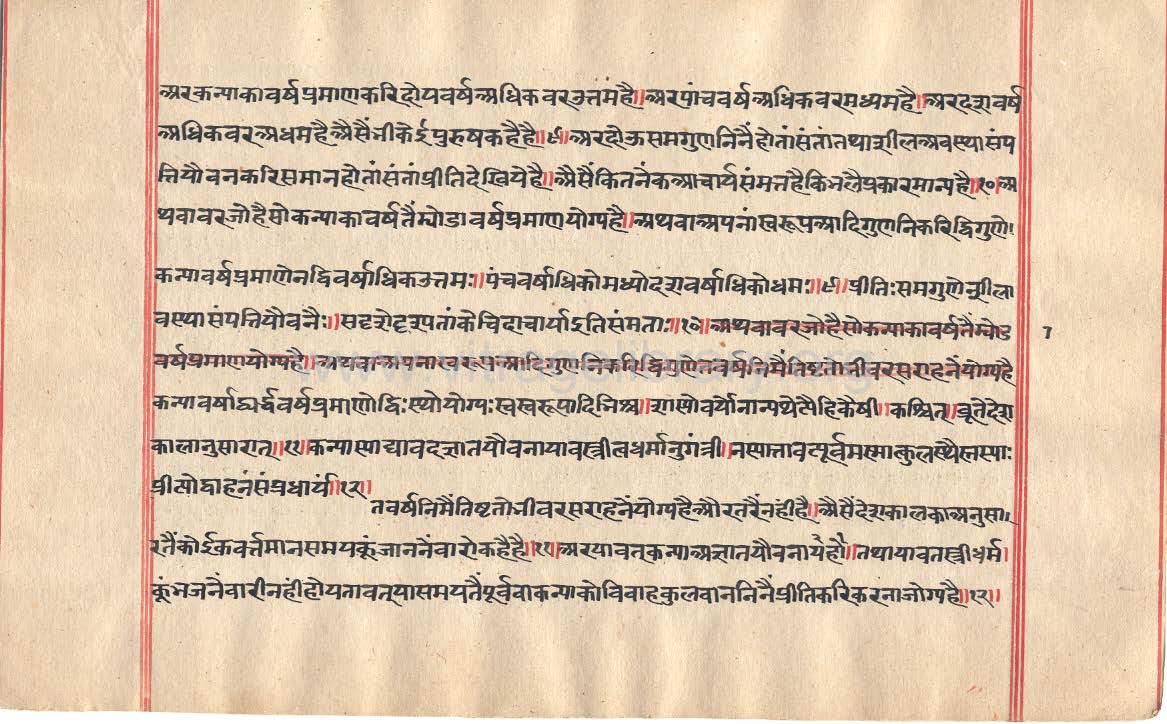 अर कन्याका वर्ष प्रमाण करि दोय वर्ष अधिक वर उत्तम है॥ अर पांच वर्ष अधिक वर मध्यम है॥ अर दश वर्ष
अधिक वर अधम है अैसैं जी केई पुरुष कहै है॥९॥ अर दोऊ समगुणनिनैं होतां संतां तथा शील अवस्था संप
त्ति यौवन करि समान होतां संतां प्रीति देखिये है॥ अैसैं कितनेंक आचार्य संमत है कि भलै प्रकार मान्य है॥१०॥ अ
थवा वर जो है सो कन्याका वर्षतैं ड्योडा वर्ष प्रमाण योग्य है॥ अथवा अपनां स्वरूप आदि गुणनि करि द्विगुणे।
कन्यावर्षप्रमाणेन द्विवर्षाधिक उत्तमः॥ पंचवर्षाधिको मध्यो दशवर्षाधिकोधमः॥९॥ प्रीतिः समगुणे शीला
वस्थासंपत्तियौवनैः॥ सदृशे दृश्यतां केचिदाचार्या इति संमताः॥१०॥ अथवा वर जो है सो कन्याका वर्षतैं ड्योड
वर्ष प्रमाण योग्य है॥ अथवा अपना स्वरूप आदि गुणनि करि द्विगुणे तवर्षनिमैं तिष्टतो जी वर सराहनें योग्य है
कन्यावर्षाद्ध्यर्द्धवर्षप्रमाणो द्विःस्थो योग्यः स्वस्वरूपादिभिश्च॥ शस्तो वर्यो नान्यथेत्यैहिकैषी॥ कश्चित् ब्रूते देश
कालानुसारात्॥११॥ कन्या स्याद्यावदज्ञातयौवना यावस्त्रीत्वधर्मानुगंत्री॥ न स्यात्तावत्पूर्वमस्मात्कुलस्थैस्तस्याः
प्रीत्योद्वाहनं संप्रधार्यं॥१२॥
तवर्षनिमैं तिष्टतो जी वर सराहनें योग्य है और तरैं नंही है॥ अैसैं देशकालका अनुसा।
रतैं कोई क वर्तमान समयकूं जाननैंवारो कहै है॥११॥ अर यावत् कन्या अज्ञातयौवनाये हो॥ तथा यावत् स्त्रीधर्म।
कूं भजनेवारी नंही होय तावत् या समयतैं पूर्व वा कन्याको विवाह कुलवाननिनैं प्रीति करि करना जोग्य है॥१२॥
७
www.vitragelibrary.org